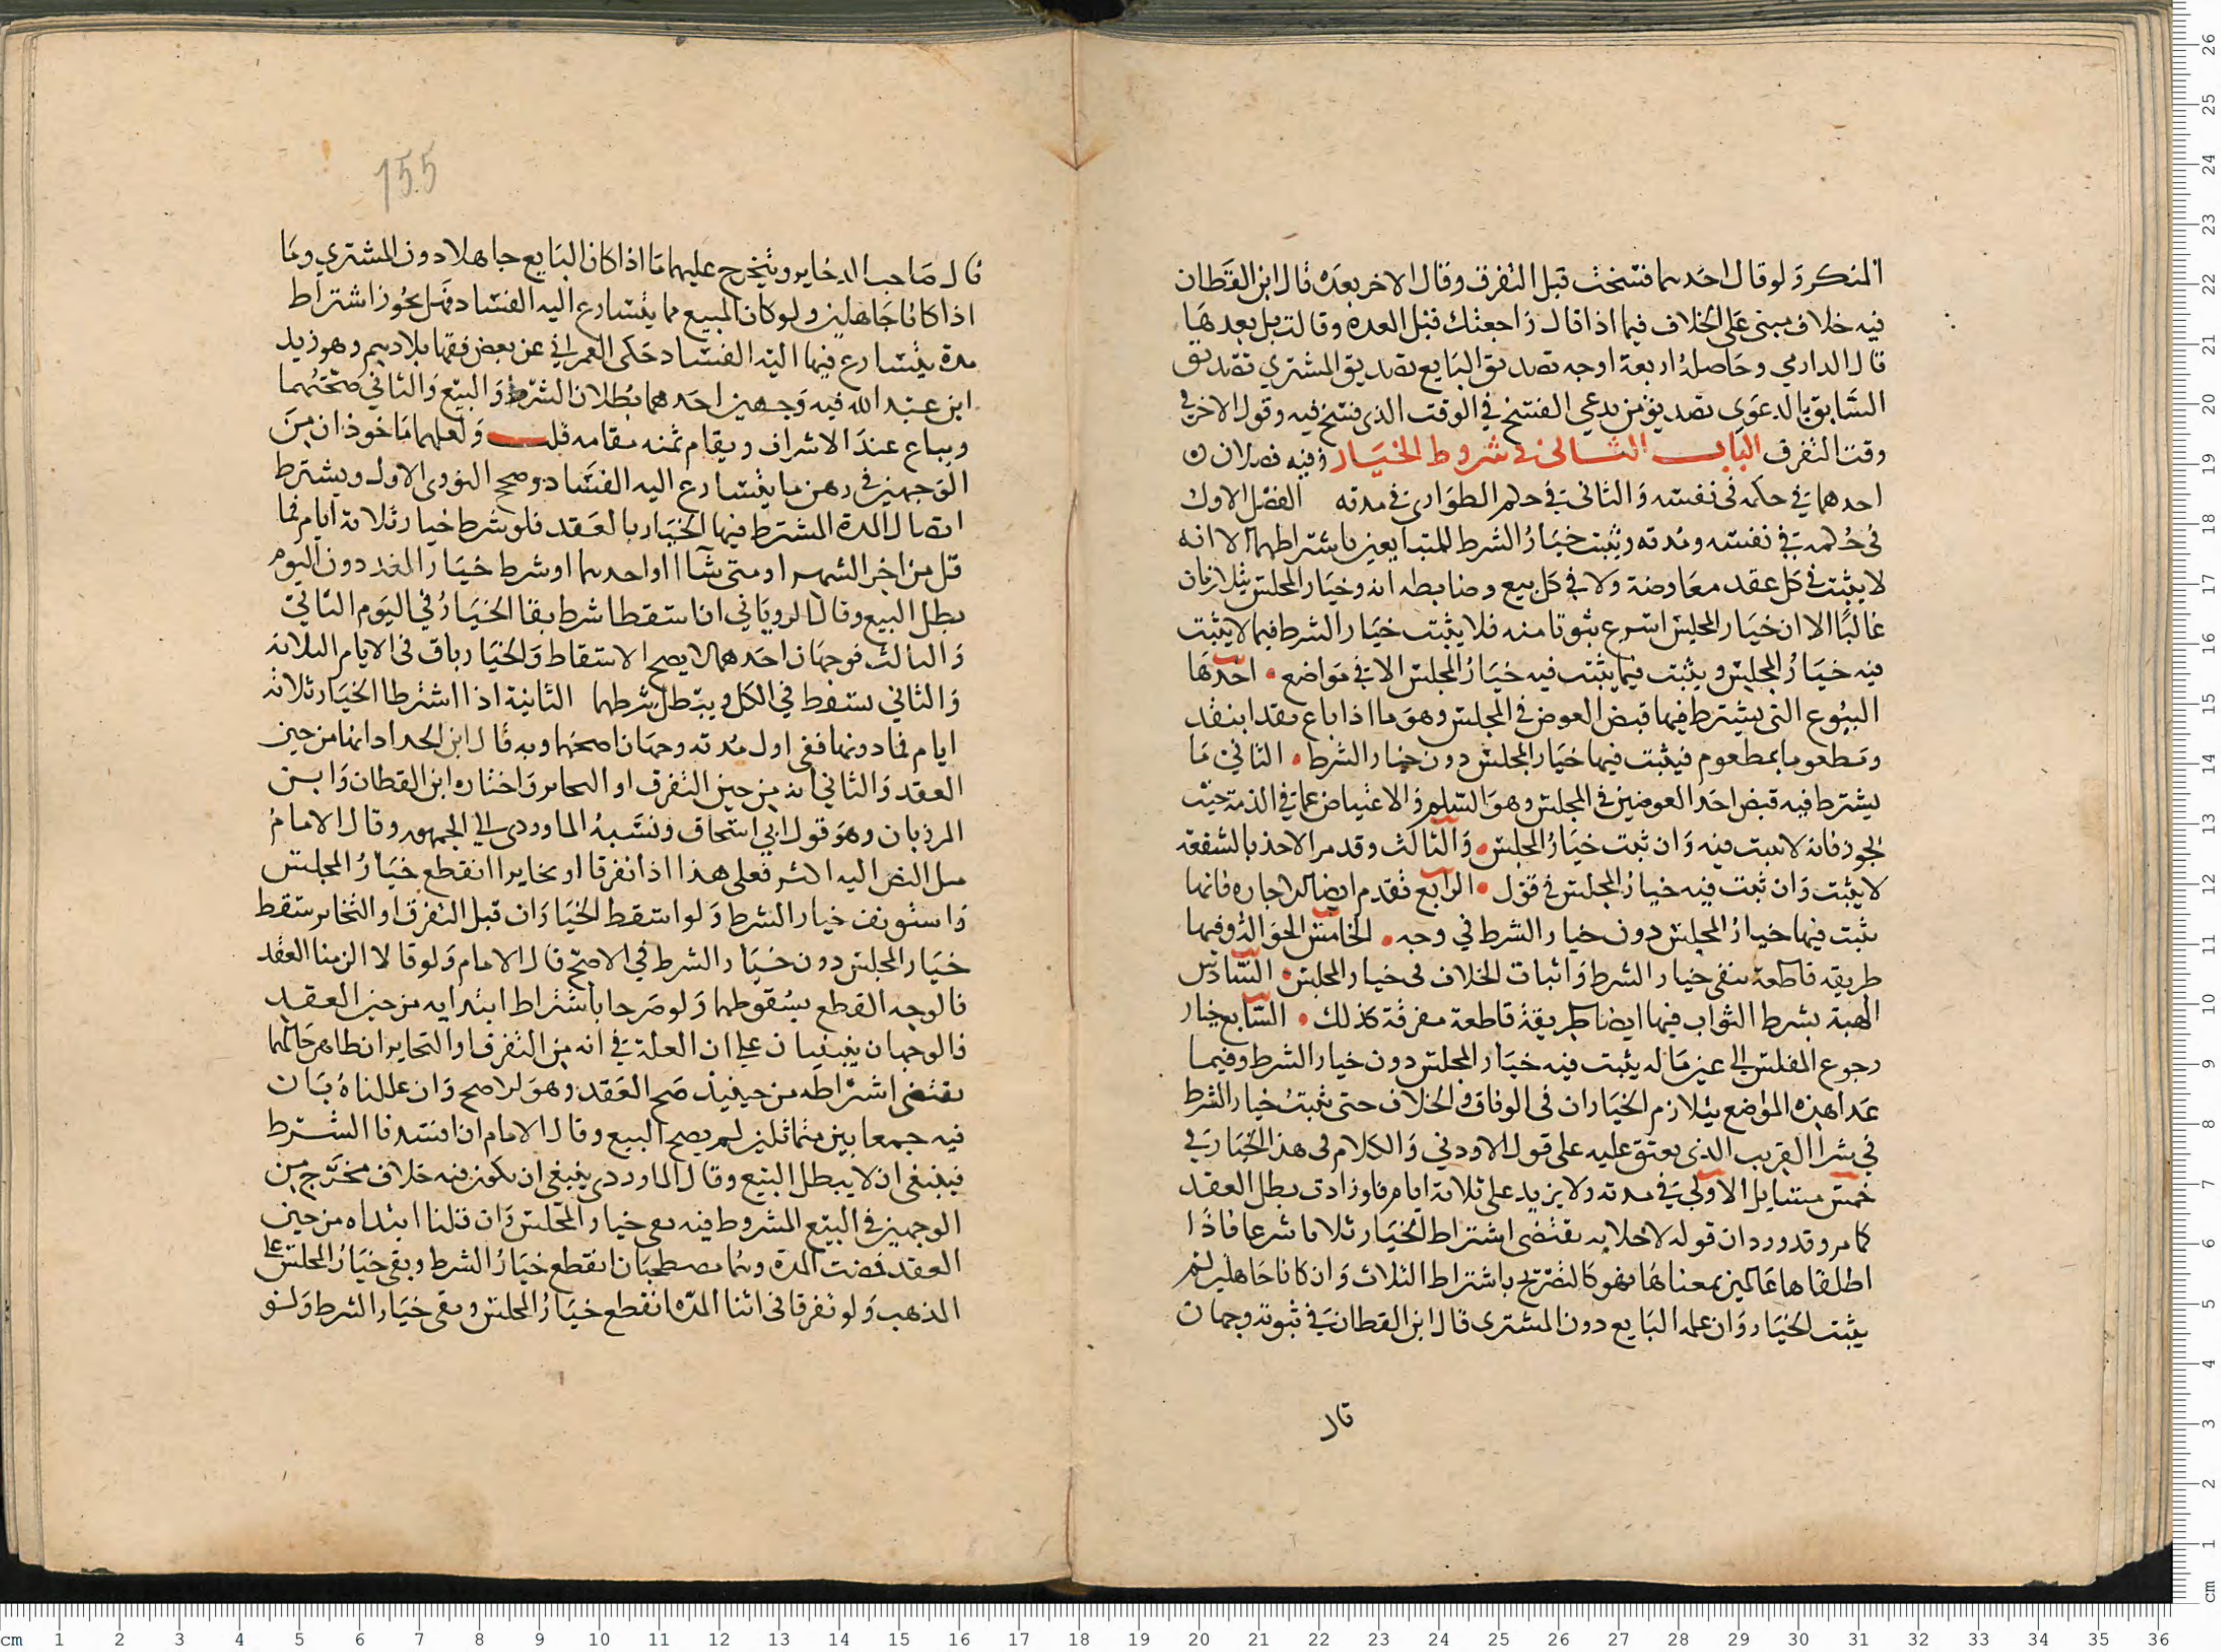 المنكر ولو قال احدهما فسخت قبل التفرق وقال الاخر بعده قال ابن القطان
فيه خلاف مبنى على الخلاف فيما اذا قال راجعتك قبل العده وقالت بل بعدها
قال الدارمي وحاصله اربعة اوجه تصديق البايع تصديق المشتري تصديق
السابق بالدعوى تصديق من يدعي الفسخ في الوقت الذي فسخ فيه وقول الاخر في
وقت التفرق الباب الثاني في شروط الخيار وفيه فصلان
احدهما في حكمه في نفسه والثاني في حكم الطوارئ في مدته الفصل الاول
في حكمه في نفسه ومدته ويثبت خيار الشرط للمتبايعين باشتراطهما الا انه
لا يثبت في كل عقد معاوضة ولا في كل بيع وضابطه انه وخيار المجلس يتلازمان
غالبًا الا ان خيار المجلس اسرع ثبوتا منه فلا يثبت خيار الشرط فيما لا يثبت
فيه خيار المجلس ويثبت فيما يثبت فيه خيار المجلس الا في مواضع • احدها
البيوع التي يشترط فيها قبض العوض في المجلس وهو ما اذا باع نقدا بنقد
ومطعوما بمطعوم فيثبت فيها خيار المجلس دون خيار الشرط • الثاني ما
يشترط فيه قبض احد العوضين في المجلس وهو السلم والاعتياض عما في الذمة حيث
يجوز فانه لا يثبت فيه وان ثبت خيار المجلس • والثالث وقد مر الاخذ بالشفعة
لا يثبت وان ثبت فيه خيار المجلس في قول • الرابع تقدم ايضا الاجاره فانها
يثبت فيها خيار المجلس دون خيار الشرط في وجه • الخامس الحوالة وفيها
طريقه قاطعة بنفي خيار الشرط واثبات الخلاف في خيار المجلس • السادس
الهبة بشرط الثواب فيها ايضا طريقة قاطعة مفرقة كذلك • السابع خيار
رجوع المفلس الى عين ماله يثبت فيه خيار المجلس دون خيار الشرط وفيما
عدا هذه المواضع يتلازم الخياران في الوفاق والخلاف حتى يثبت خيار الشرط
في شرا القريب الذي يعتق عليه على قول الاودني والكلام في هذا الخيار في
خمس مسايل الاولى في مدته ولا يزيد على ثلاثة ايام فلو زادت بطل العقد
كما مر وقد ورد ان قوله لا خلابه يقتضى اشتراط الخيار ثلاثا شرعا فاذا
اطلقاها عالمين بمعناها فهو كالتصريح باشتراط الثلاث وان كانا جاهلين لم
يثبت الخيار وان علمه البايع دون المشترى قال ابن القطان في ثبوته وجهان
قال
155
قال صاحب الدخاير ويتخرج عليهما ما اذا كان البايع جاهلا دون المشتري وما
اذا كانا جاهلين ولو كان المبيع مما يتسارع اليه الفساد فهل يجوز اشتراط
مدة يتسارع فيها اليه الفساد حكى العمراني عن بعض فقها بلاديهم وهو زيد
ابن عبد الله فيه وجهين احدهما بطلان الشرط والبيع والثاني صحتهما
ويباع عند الاشراف ويقام ثمنه مقامه قلت ولعلهما ماخوذان من
الوجهين في رهن ما يتسارع اليه الفساد وصحح النووى الاول ويشترط
اتصال المدة المشترط فيها الخيار بالعقد فلو شرط خيار ثلاثة ايام فما
قل من اخر الشهر او متى شآا او احدهما او شرط خيار الغد دون اليوم
بطل البيع وقال الروياني ان اسقطا شرط بقا الخيار في اليوم الثاني
والثالث فوجهان احدهما لا يصح الاسقاط والخيار باق فى الايام الثلاثه
والثاني يسقط في الكل ويبطل شرطهما الثانية اذا اشترطا الخيار ثلاثه
ايام فما دونها ففي اول مدته وجهان اصحهما وبه قال ابن الحداد انها من حين
العقد والثاني انه من حين التفرق او التخاير واختاره ابن القطان وابن
المرزبان وهو قول ابي اسحاق ونسبه الماوردى الى الجمهور وقال الامام
ميل النص اليه اكثر فعلى هذا اذا تفرقا او تخايرا انقطع خيار المجلس
واستونف خيار الشرط ولو اسقط الخياران قبل التفرق او التخاير سقط
خيار المجلس دون خيار الشرط في الاصح قال الامام ولو قالا الزمنا العقد
فالوجه القطع بسقوطهما ولو صرحا باشتراط ابتدايه من حين العقد
فالوجهان ينبنيان على ان العلة في انه من التفرق او التخاير ان ظاهر حالهما
يقتضى اشتراطه من حينيذ صح العقد وهو الاصح وان عللناه بان
فيه جمعا بين متماثلين لم يصح البيع وقال الامام ان افسدنا الشرط
فينبغى ان لا يبطل البيع وقال الماوردى ينبغى ان يكون فيه خلاف مخرج من
الوجهين في البيع المشروط فيه نفى خيار المجلس وان قلنا ابتداه من حين
العقد فمضت المدة وهما مصطحبان انقطع خيار الشرط وبقى خيار المجلس على
المذهب ولو تفرقا فى اثنا المده انقطع خيار المجلس وبقى خيار الشرط ولو